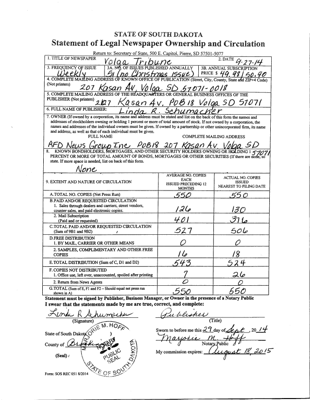 STATE OF SOUTH DAKOTA
Statement of Legal Newspaper Ownership and Circulation
Return to: Secretary of State, 500 E. Capitol, Pierre, SD 57501-5077
1. TITLE OF NEWSPAPER Volga Tribune
2. DATE 9-27-14
3. FREQUENCY OF ISSUE Weekly
3A. NO. OF ISSUES PUBLISHED ANNUALLY 51 (no Christmas issue)
3B. ANNUAL SUBSCRIPTION PRICE $
4. COMPLETE MAILING ADDRESS OF KNOWN OFFICE OF PUBLICATION (Street, City, County, State and ZIP+4 Code)
(Not printers) 207 Kasan Av, Volga SD 57071-0018
5. COMPLETE MAILING ADDRESS OF THE HEADQUARTERS OR GENERAL BUSINESS OFFICES OF THE
PUBLISHER (Not printer) 207 Kasan Av, POB 18 Volga SD 57071
6. FULL NAME OF PUBLISHER: Linda R. Schumacher
7. OWNER (If owned by a corporation, its name and address must be stated and list on the back of this form the names and
addresses of stockholders owning or holding 1 percent or more of total amount of stock. If not owned by a corporation, the
names and addresses of the individual owners must be given. If owned by a partnership or other unincorporated firm, its name
and address, as well as that of each individual must be given.
FULL NAME COMPLETE MAILING ADDRESS
RFD News Group Inc POB 18 207 Kasan Av Volga SD
57071
8. KNOWN BONDHOLDERS, MORTGAGEES, AND OTHER SECURITY HOLDERS OWNING OR HOLDING 1
PERCENT OR MORE OF TOTAL AMOUNT OF BONDS, MORTGAGES OR OTHER SECURITIES (If there are none, so
state. If more space is needed, list on back of this form.
None
9. EXTENT AND NATURE OF CIRCULATION
AVERAGE NO. COPIES EACH ISSUED PRECEDING 12 MONTHS
ACTUAL NO. COPIES ISSUED NEAREST TO FILING DATE
A. TOTAL NO. COPIES (Net Press Run) 550 550
B. PAID AND/OR REQUESTED CIRCULATION
1. Sales through dealers and carriers, street vendors,
counter sales, and paid electronic copies. 126 130
2. Mail Subscription
(Paid and or requested) 401 376
C. TOTAL PAID AND/OR REQUESTED CIRCULATION
(Sum of 9B1 and 9B2) 527 506
D. FREE DISTRIBUTION
1. BY MAIL, CARRIER OR OTHER MEANS 0 0
2. SAMPLES, COMPLIMENTARY AND OTHER FREE
COPIES 16 18
E. TOTAL DISTRIBUTION (Sum of C, D1 and D2) 543 524
F. COPIES NOT DISTRIBUTED
1. Office use, left over, unaccounted, spoiled after printing 7 26
2. Return from News Agents 0 0
G. TOTAL (Sum of E, F1 and F2 - Should equal net press run
shown in A) 550 550
Statement must be signed by Publisher, Business Manager, or Owner in the presence of a Notary Public
I swear that the statements made by me are true, correct, and complete:
Linda R Schumacher Publisher
(Signature) (Title)
State of South Dakota
County of
(Seal)
Sworn to before me this 27 day of Sept, 2014
Marjorie M. Hoff
Notary Public
My commission expires: August 18, 2015
MARJORIE M. HOFF
NOTARY PUBLIC
SEAL
STATE OF SOUTH DAKOTA